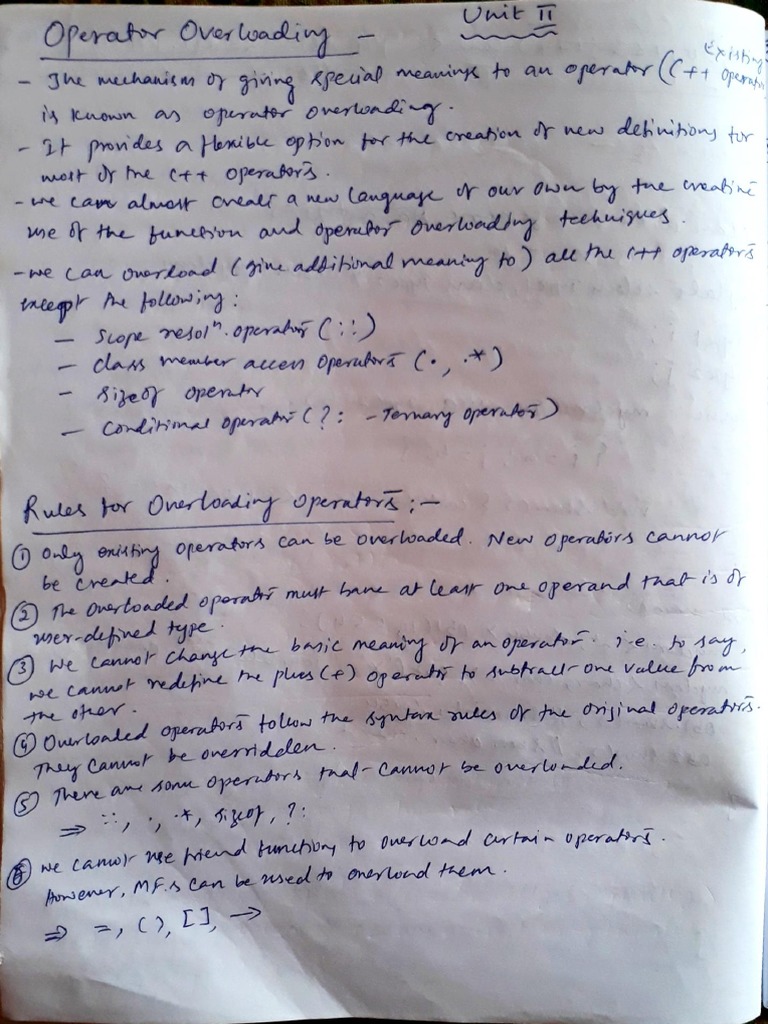 Unit II
Operator Overloading -
Existing
- The mechanism of giving special meanings to an operator (C++ operator
is known as operator overloading.
- It provides a flexible option for the creation of new definitions for
most of the C++ operators.
- we can almost create a new language of our own by the creative
use of the function and operator overloading techniques.
- we can overload (give additional meaning to) all the C++ operators
except the following:
- Scope resolⁿ. operator (::)
- class member access operators (., .*)
- sizeof operator
- Conditional operator (?: - Ternary operator)
Rules for Overloading operators :-
① Only existing operators can be overloaded. New operators cannot
be created.
② The overloaded operator must have at least one operand that is of
user-defined type.
③ We cannot change the basic meaning of an operator. i.e. to say,
we cannot redefine the plus (+) operator to subtract one value from
the other.
④ Overloaded operators follow the syntax rules of the original operators.
They cannot be overridden.
⑤ There are some operators that cannot be overloaded.
⇒ ::, ., .*, sizeof, ?:
⑥ we cannot use friend functions to overload certain operators.
However, MF.s can be used to overload them.
⇒ =, ( ), [ ], →